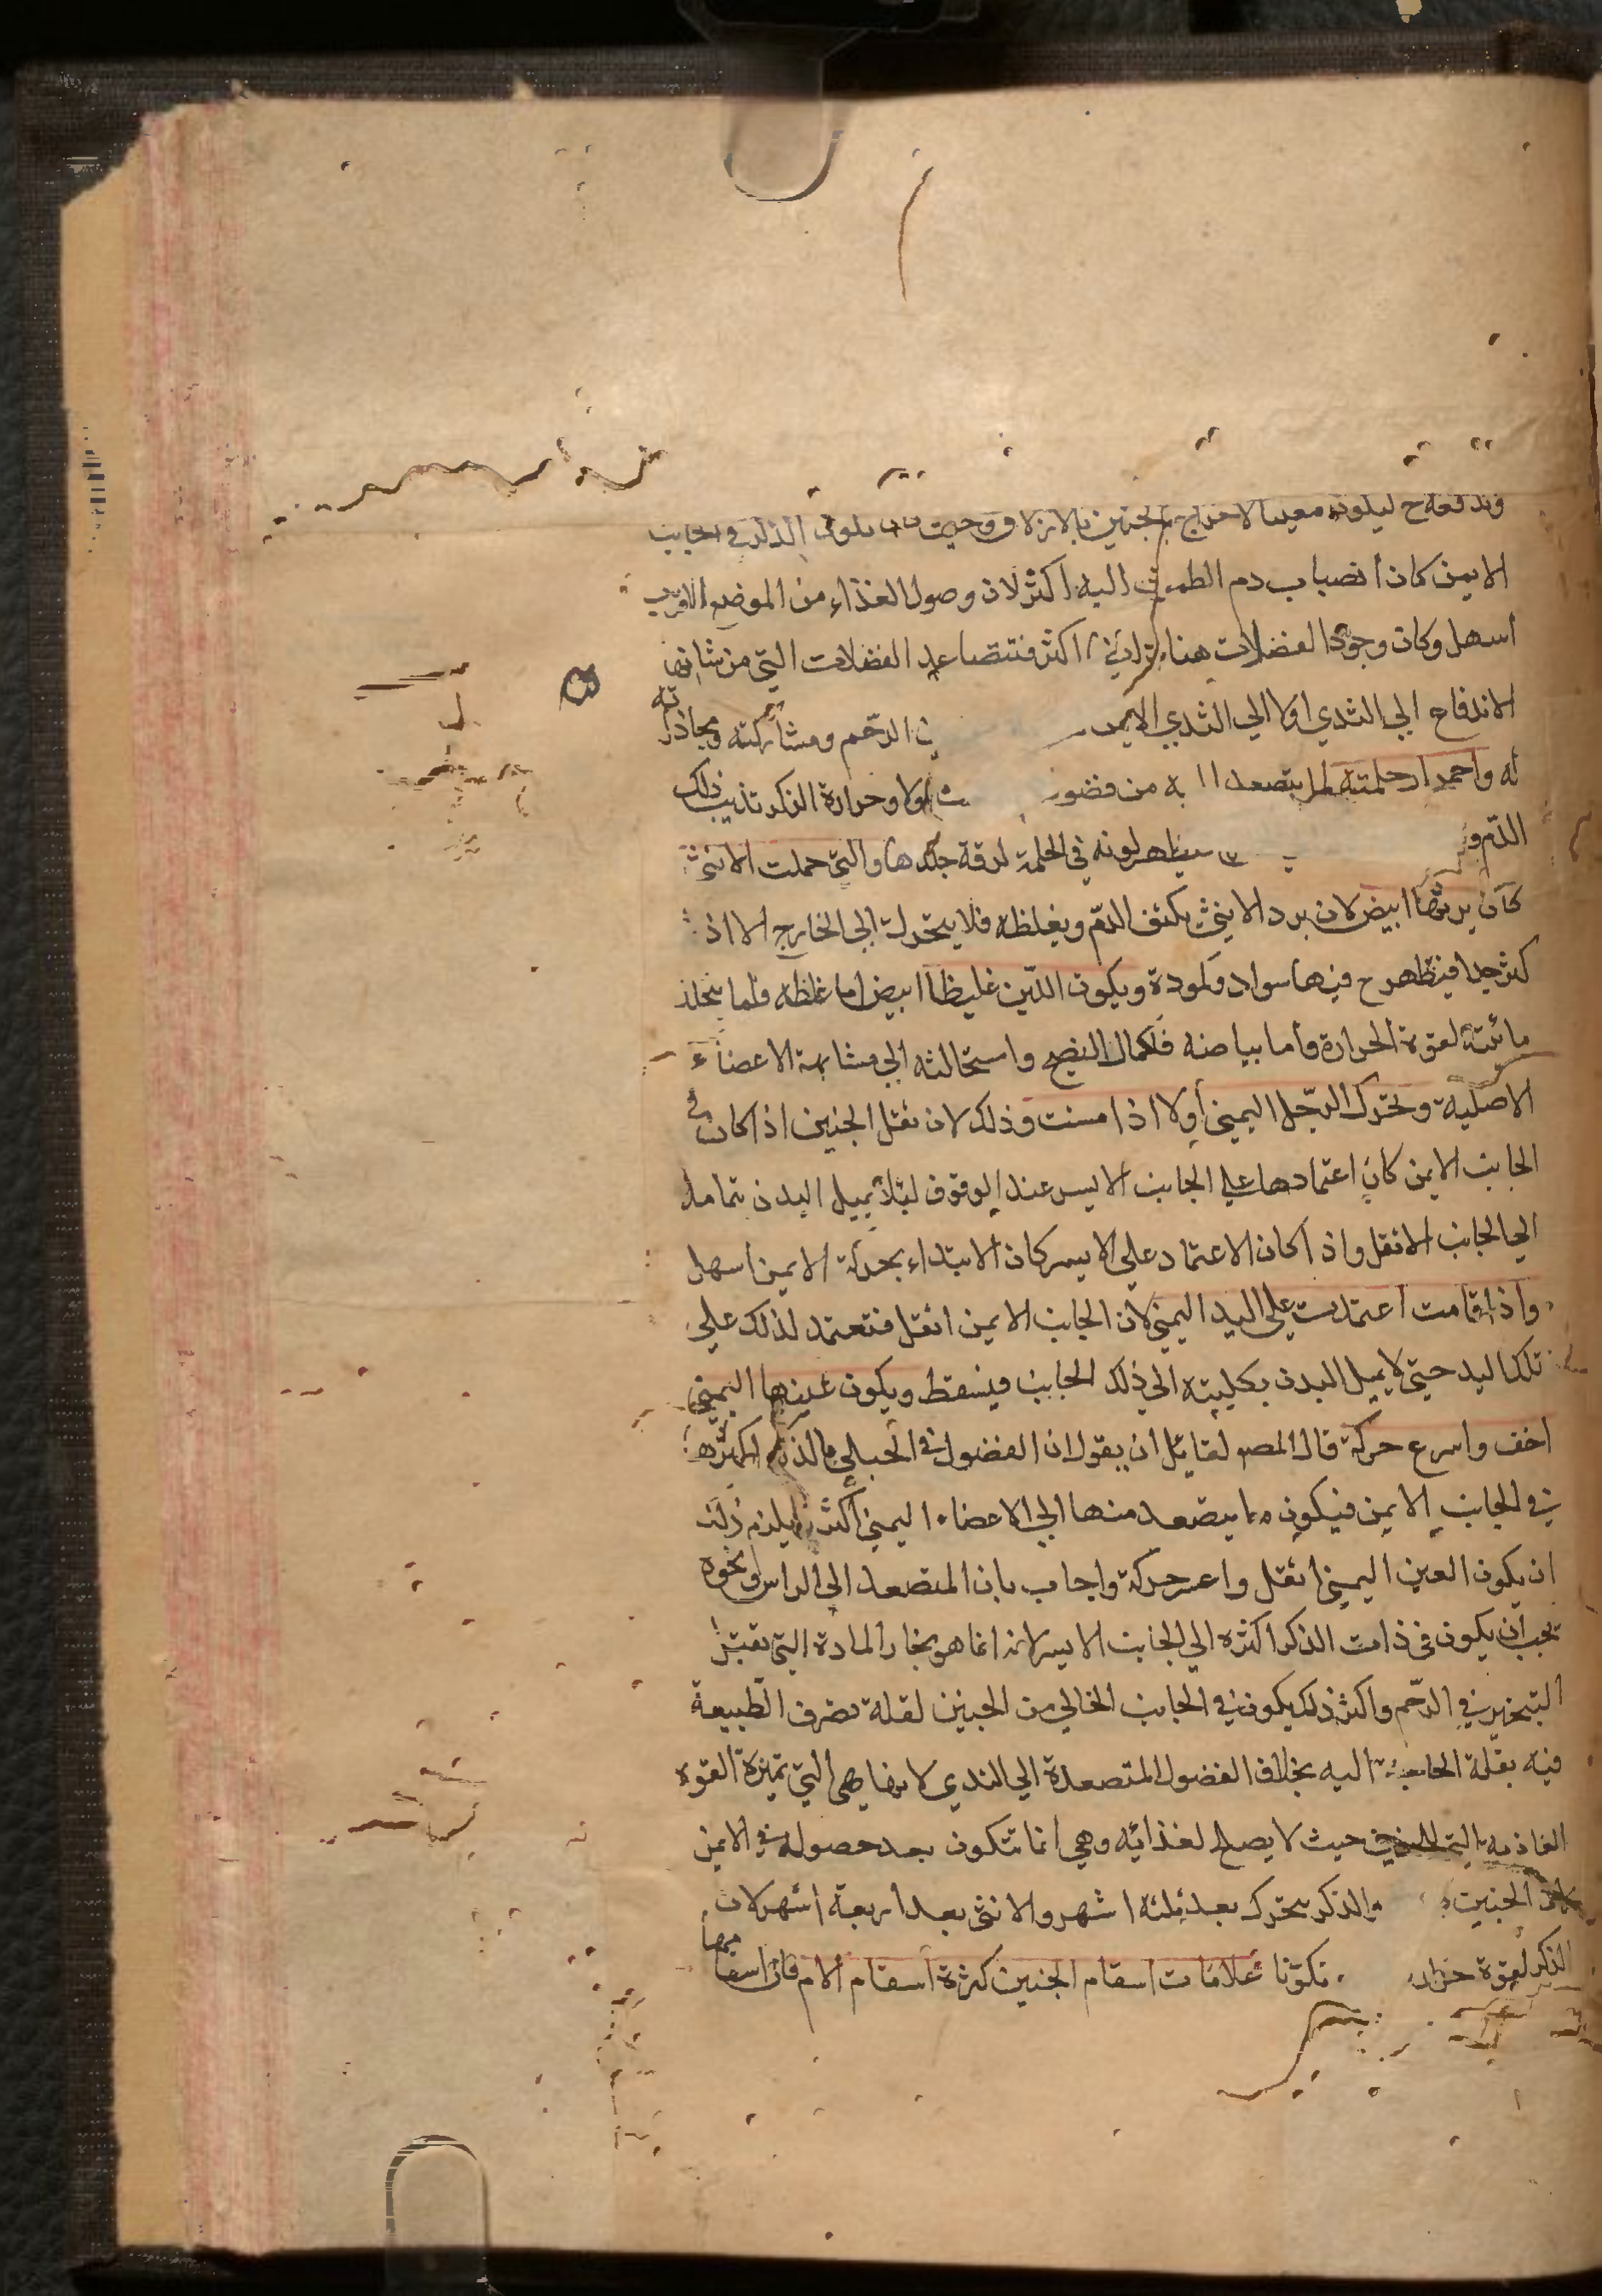 وتدفعه ح ليكون معينا لاخراج الجنين بالازلاق وحيث يكون الذكر في الجانب
الايمن كان انصباب دم الطمث اليه اكثر لان وصول الغذاء من الموضع الاقرب
اسهل وكان وجود الفضلات هنا اكثر فتتصاعد الفضلات التي من شانها
الاندفاع الي الثدي اولا الي الثدي الايمن الرحم ومشاركته ومحاذاته
له واحمرار حلمته لما يتصعد به من فضول اولا وحرارة الذكر تذيب ذلك
الدم و فيظهر لونه في الحلمة لرقة جلدها والتي حملت الانثي
كان ابيض لان برد الانثي يكثف الدم ويغلظه فلا يتحرك الي الخارج الا اذا
كثر جدا فيظهر ح فيها سواد وكمودة ويكون اللبن غليظا ابيض اما غلظه فلما يتحلل
مائيته لقوة الحرارة واما بياضه فلكمال النضج واستحالته الي مشابهة الاعضاء
الاصلية وتحرك الرجل اليمني اولا اذا مشت وذلك لان ثقل الجنين اذا كان في
الجانب الايمن كان اعتمادها علي الجانب الايسر عند الوقوف ليلا يميل البدن بتمامه
الي الجانب الاثقل واذا كان الاعتماد علي الايسر كان الابتداء بحركة الايمن اسهل
واذا قامت اعتمدت علي اليد اليمني لان الجانب الايمن اثقل فتعتمد لذلك علي
تلك اليد حتي لا يميل البدن بكليته الي ذلك الجانب فيسقط ويكون عينها اليمني
اخف واسرع حركة قال المص لقايل ان يقول ان الفضول في الحبلي بالذكر اكثرها
في الجانب الايمن فيكون ما يتصعد منها الي الاعضاء اليمني اكثر ويلزم ذلك
ان يكون العين اليمني اثقل واعسر حركة واجاب بان المتصعد الي الراس ونحوه
يجب ان يكون في ذات الذكر اكثره الي الجانب الايسر لانه انما هو بخار المادة التي
التبخير في الرحم واكثر ذلك يكون في الجانب الخالي من الجنين لقلة تصرف الطبيعة
فيه بقلة الحاجة اليه بخلاف الفضول المتصعدة الي الثدي لانها هي التي تميزه القوة
الغاذية التي للجنين حيث لا يصلح لغذائيه وهي انما تتكون بعد حصوله في الايمن
الجنين والذكر يتحرك بعد ثلثة اشهر والانثي بعد اربعة اشهر لان
الذكر لقوة تكونا علامات اسقام الجنين كثرة اسقام الام فان اسقامها